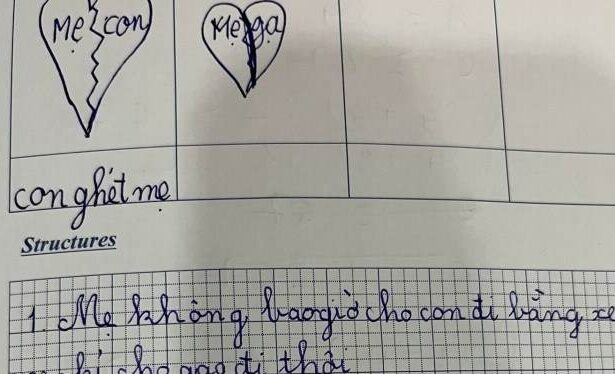 Mẹ con
Mẹ ga
con ghét mẹ
Structures
1. Mẹ không bao giờ cho con đi bằng xe
chỉ cho đi thôi